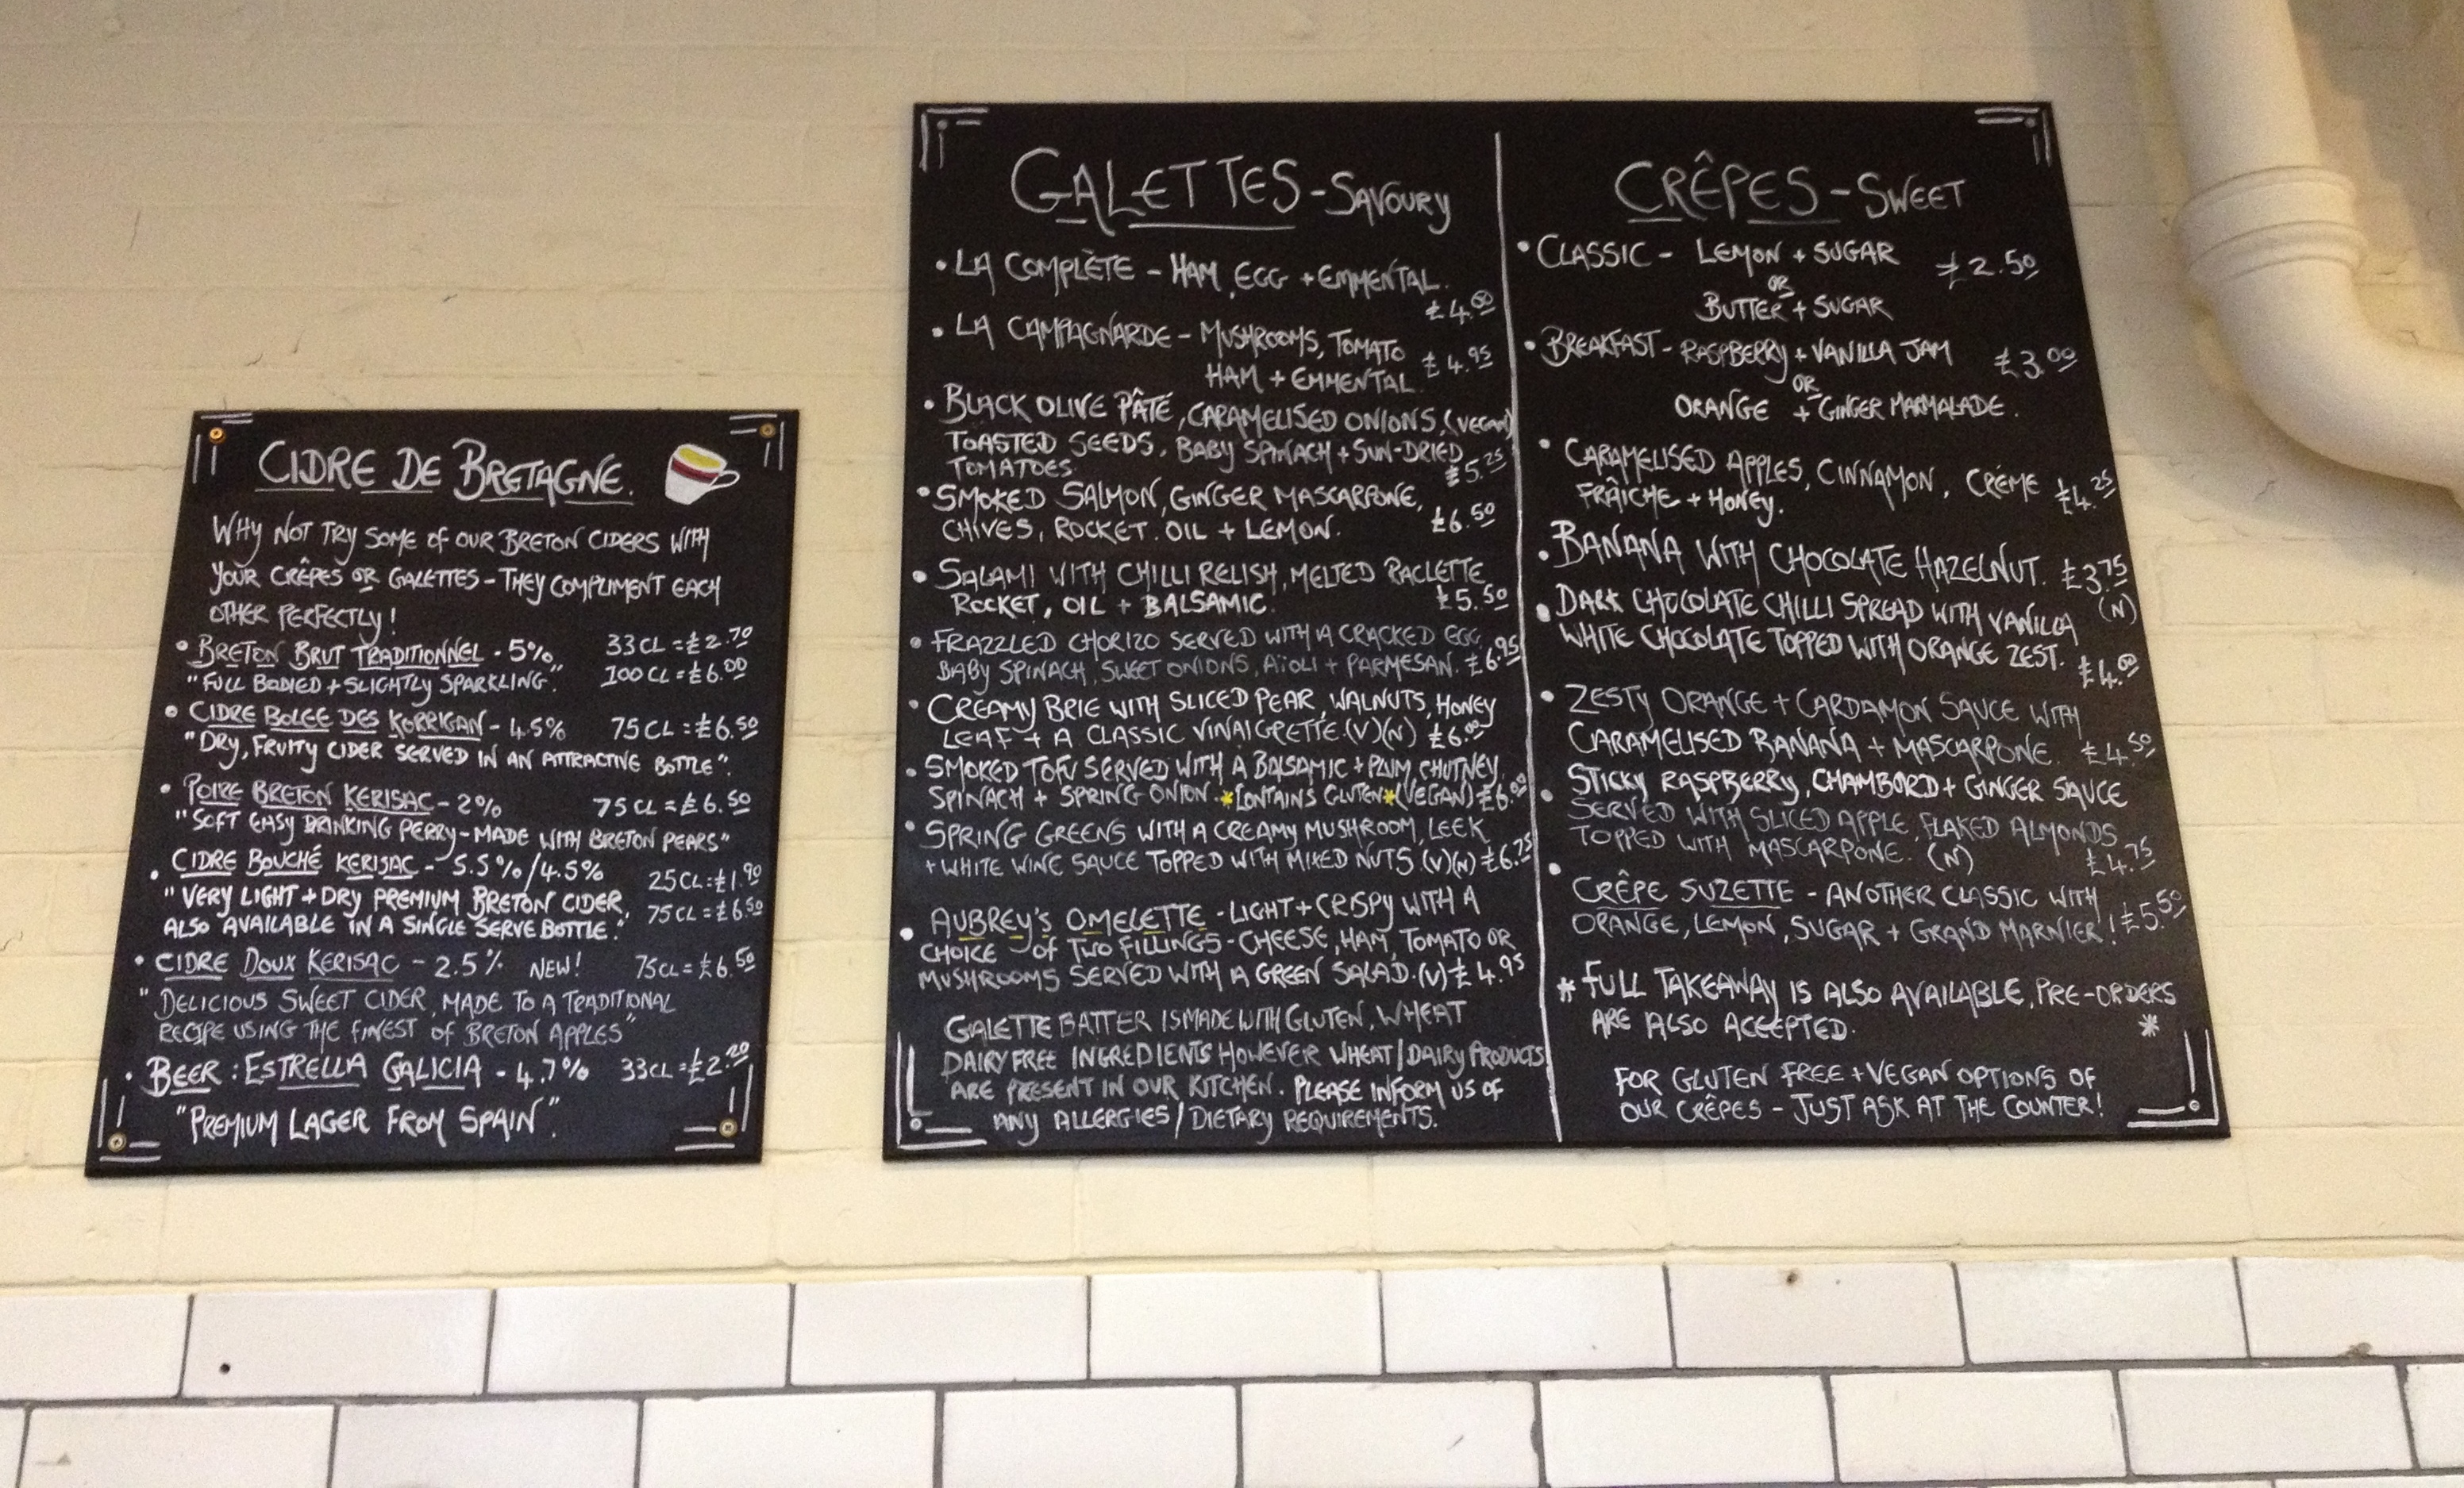 CIDRE DE BRETAGNE.
WHY NOT TRY SOME OF OUR BRETON CIDERS WITH
YOUR CRÊPES OR GALETTES - THEY COMPLIMENT EACH
OTHER PERFECTLY!
• BRETON BRUT TRADITIONNEL - 5% 33CL = £2.70
"FULL BODIED + SLIGHTLY SPARKLING." 100CL = £6.00
• CIDRE BOLEE DES KORRIGAN - 4.5% 75CL = £6.50
"DRY, FRUITY CIDER SERVED IN AN ATTRACTIVE BOTTLE".
• POIRE BRETON KERISAC - 2% 75CL = £6.50
"SOFT EASY DRINKING PERRY - MADE WITH BRETON PEARS"
• CIDRE BOUCHÉ KERISAC - 5.5%/4.5% 25CL = £1.90
"VERY LIGHT + DRY PREMIUM BRETON CIDER, 75CL = £6.50
ALSO AVAILABLE IN A SINGLE SERVE BOTTLE."
• CIDRE DOUX KERISAC - 2.5% NEW! 75CL = £6.50
"DELICIOUS SWEET CIDER, MADE TO A TRADITIONAL
RECIPE USING THE FINEST OF BRETON APPLES"
• BEER: ESTRELLA GALICIA - 4.7% 33CL = £2.20
"PREMIUM LAGER FROM SPAIN".
GALETTES - SAVOURY
• LA COMPLÈTE - HAM, EGG + EMMENTAL.
£4.00
• LA CAMPAGNARDE - MUSHROOMS, TOMATO
HAM + EMMENTAL. £4.95
• BLACK OLIVE PÂTÉ, CARAMELISED ONIONS, (VEGAN)
TOASTED SEEDS, BABY SPINACH + SUN-DRIED
TOMATOES. £5.25
• SMOKED SALMON, GINGER MASCARPONE,
CHIVES, ROCKET. OIL + LEMON. £6.50
• SALAMI WITH CHILLI RELISH, MELTED RACLETTE
ROCKET, OIL + BALSAMIC. £5.50
• FRAZZLED CHORIZO SERVED WITH A CRACKED EGG,
BABY SPINACH, SWEET ONIONS, AÏOLI + PARMESAN. £6.95
• CREAMY BRIE WITH SLICED PEAR, WALNUTS, HONEY
LEAF + A CLASSIC VINAIGRETTE.(V)(N) £6.00
• SMOKED TOFU SERVED WITH A BALSAMIC + PLUM CHUTNEY,
SPINACH + SPRING ONION. *CONTAINS GLUTEN* (VEGAN) £6.00
• SPRING GREENS WITH A CREAMY MUSHROOM, LEEK
+ WHITE WINE SAUCE TOPPED WITH MIXED NUTS.(V)(N) £6.75
• AUBREY'S OMELETTE - LIGHT + CRISPY WITH A
CHOICE OF TWO FILLINGS - CHEESE, HAM, TOMATO OR
MUSHROOMS SERVED WITH A GREEN SALAD.(V) £4.95
GALETTE BATTER IS MADE WITH GLUTEN, WHEAT
DAIRY FREE INGREDIENTS HOWEVER WHEAT/DAIRY PRODUCTS
ARE PRESENT IN OUR KITCHEN. PLEASE INFORM US OF
ANY ALLERGIES/DIETARY REQUIREMENTS.
CRÊPES - SWEET
• CLASSIC - LEMON + SUGAR £2.50
OR
BUTTER + SUGAR
• BREAKFAST - RASPBERRY + VANILLA JAM £3.00
OR
ORANGE + GINGER MARMALADE.
• CARAMELISED APPLES, CINNAMON, CRÈME
FRAÎCHE + HONEY. £4.25
• BANANA WITH CHOCOLATE HAZELNUT. £3.75
(N)
• DARK CHOCOLATE CHILLI SPREAD WITH VANILLA
WHITE CHOCOLATE TOPPED WITH ORANGE ZEST. £4.00
• ZESTY ORANGE + CARDAMON SAUCE WITH
CARAMELISED BANANA + MASCARPONE. £4.50
• STICKY RASPBERRY, CHAMBORD + GINGER SAUCE
SERVED WITH SLICED APPLE, FLAKED ALMONDS
TOPPED WITH MASCARPONE. (N) £4.75
• CRÊPE SUZETTE - ANOTHER CLASSIC WITH
ORANGE, LEMON, SUGAR + GRAND MARNIER! £5.50
* FULL TAKEAWAY IS ALSO AVAILABLE, PRE-ORDERS
ARE ALSO ACCEPTED. *
FOR GLUTEN FREE + VEGAN OPTIONS OF
OUR CRÊPES - JUST ASK AT THE COUNTER!